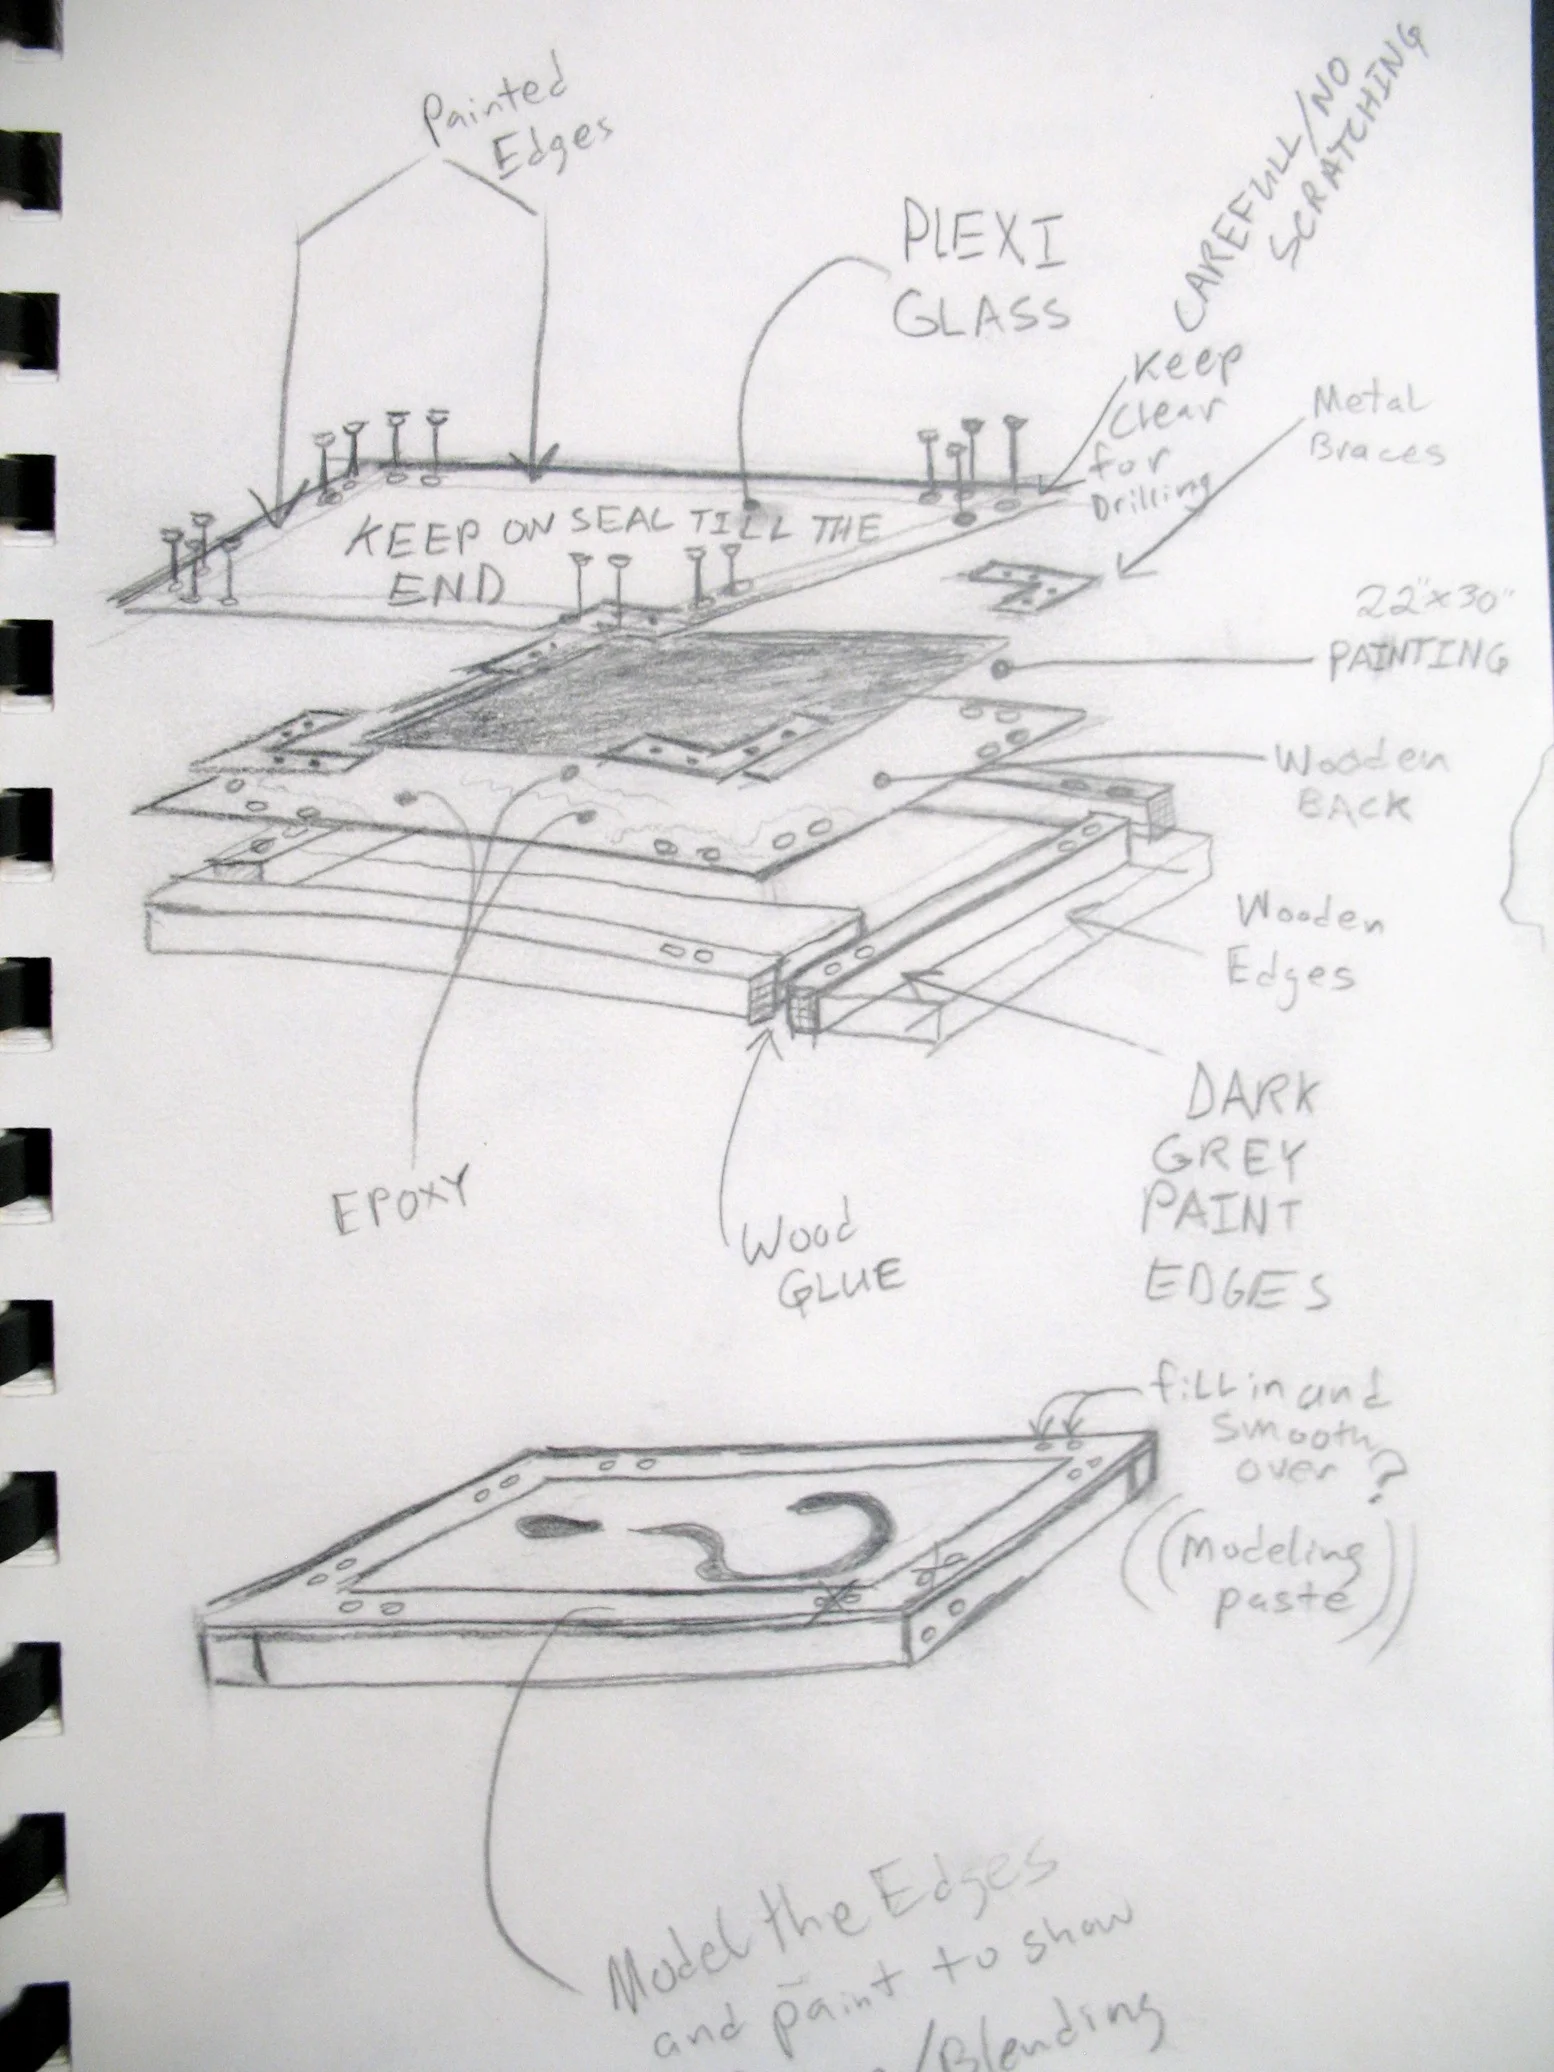 Painted
Edges
CAREFULL/NO
SCRATCHING
PLEXI
GLASS
Keep
Clear
for
Drilling
Metal
Braces
KEEP ON SEAL TILL THE
END
22"x30"
PAINTING
Wooden
BACK
Wooden
Edges
DARK
GREY
PAINT
EDGES
EPOXY
Wood
GLUE
fill in and
smooth
over ?
((Modeling
paste))
Model the Edges
and paint to show
/Blending